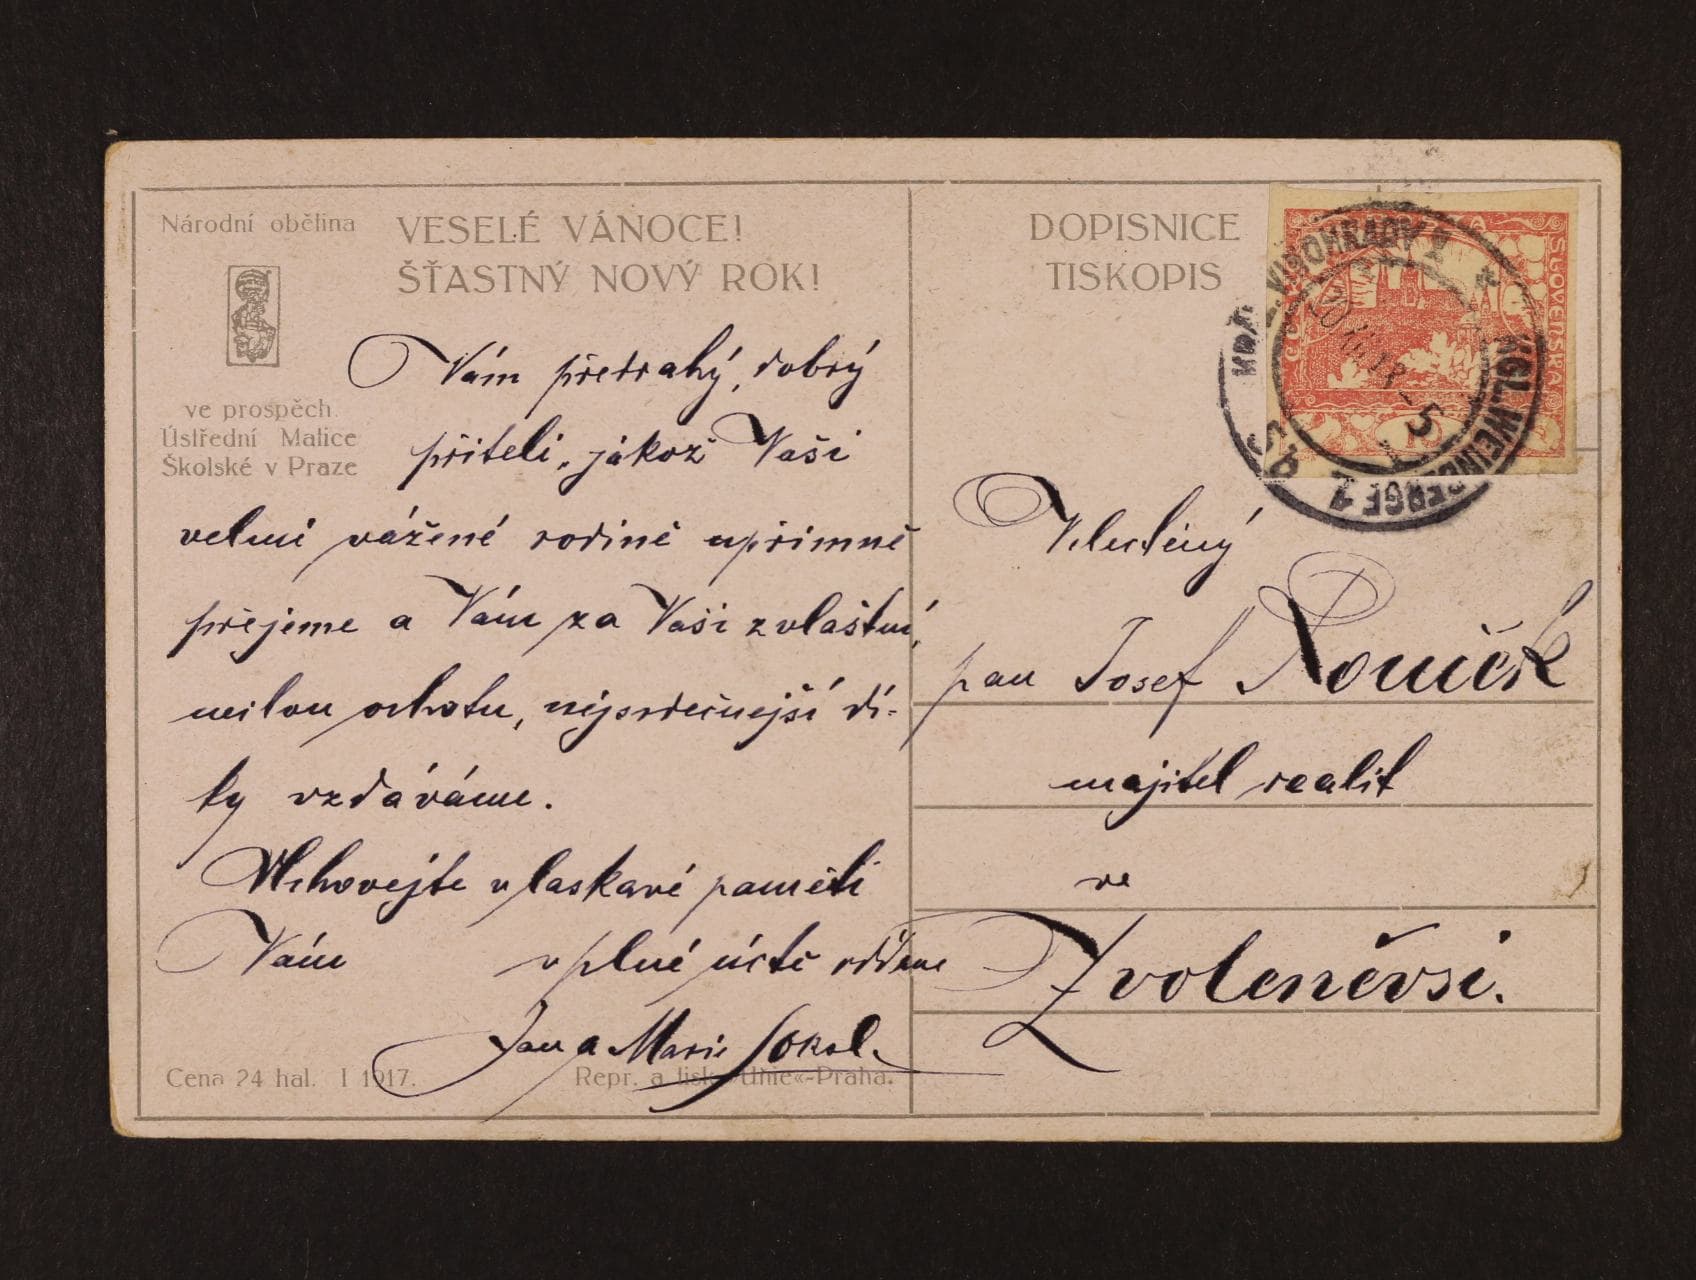 Národní obělina
VESELÉ VÁNOCE!
ŠŤASTNÝ NOVÝ ROK!
ve prospěch
Ústřední Matice
Školské v Praze
Vám předrahý, dobrý
příteli, jakož Vaší
velmi vážené rodině upřímně
přejeme a Vám za Vaši zvláštní,
milou ochotu, nejsrdečnější dí-
ky vzdáváme.
Uchovejte v laskavé paměti
Vám v plné úctě oddané
Jan a Marie Sokol.
Cena 24 hal. I 1917.
Repr. a tisk »Unie«-Praha.
DOPISNICE
TISKOPIS
SLOVENSKÁ
KRÁL. VINOHRADY 1
KGL. WEINBERGE 1
5a
Velectěný
pan Josef
majitel realit
ve
Zvoleněvsi.